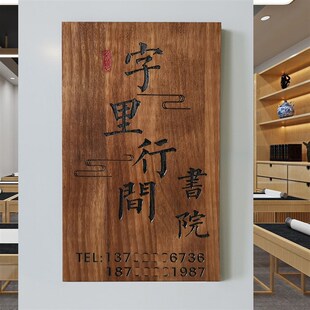 字里行間
書院
TEL:137□□□□6736
187□□□□1987